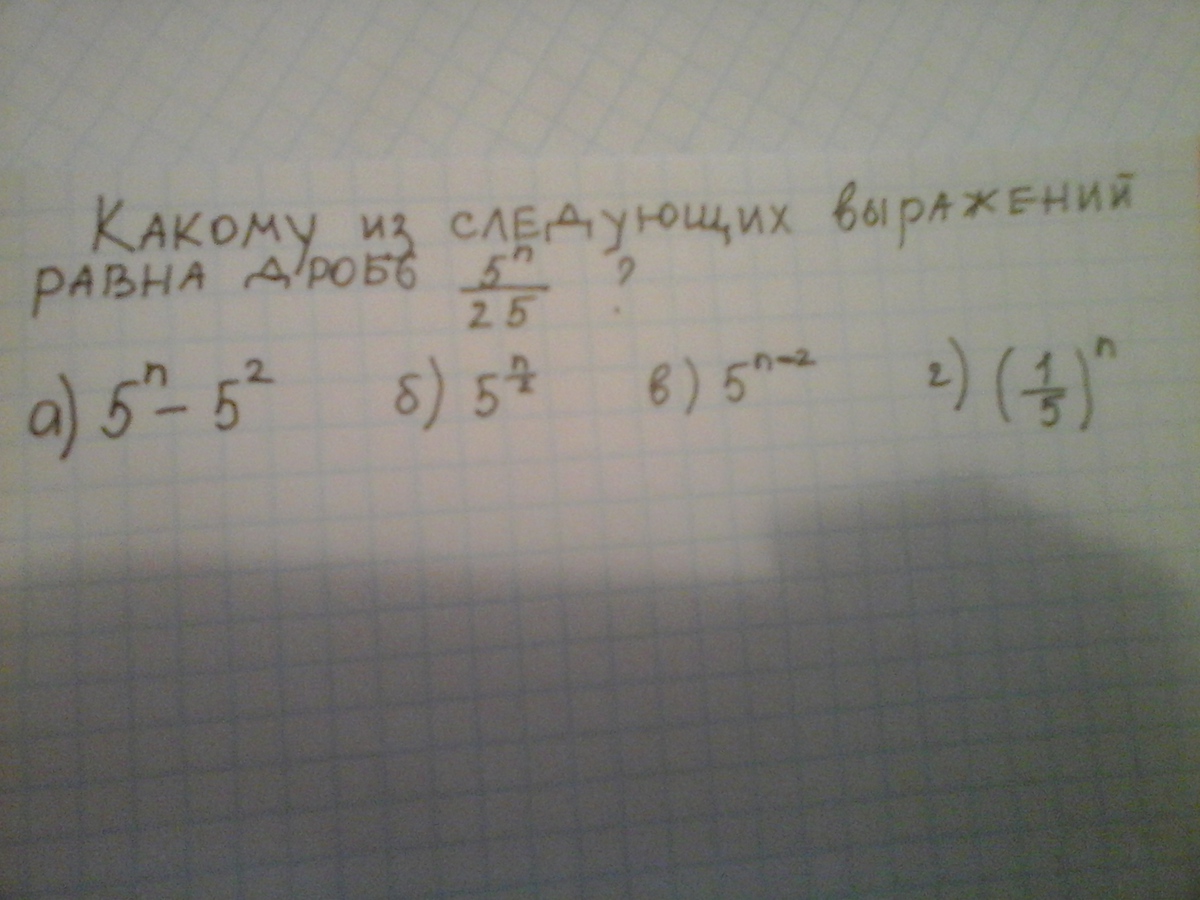 Какому из следующих выражений
равна дробь 5ⁿ/25 ?
а) 5ⁿ - 5² б) 5^(n/2) в) 5ⁿ⁻² г) (1/5)ⁿ